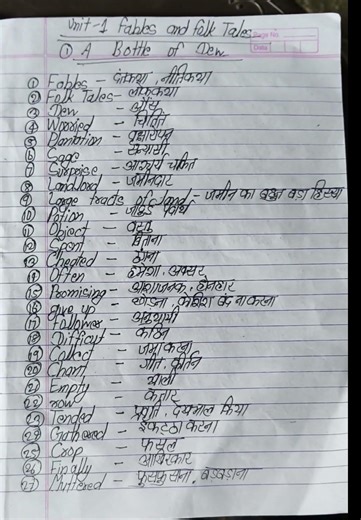 Unit-1 Fables and folk Tales
Page No
Date
① A Bottle of Dew
① Fables - दंतकथा, नीतिकथा
② Folk Tales - लोककथा
③ Dew - ओस
④ Worried - चिंतित
⑤ Plantation - वृक्षारोपण
⑥ Sage - सन्यासी
⑦ Surprise - आश्चर्य चकित
⑧ Landlord - जमीनदार
⑨ Large tracts of land - जमीन का बहुत बडा हिस्सा
⑩ Potion -
⑪ Object - वस्तु
⑫ Spent - बिताना
⑬ Cheated - ठगना
⑭ Often - हमेशा, अक्सर
⑮ Promising - आशाजनक, होनहार
⑯ give up - छोडना, कोशिश करना
⑰ follower - अनुयायी
⑱ Difficult - कठिन
⑲ Collect - जमा करना
⑳ Chant - गीत,
㉑ Empty - खाली
㉒ row - कतार
㉓ Tended - देखभाल किया
㉔ Gathered - इकट्ठा करना
㉕ Crop - फसल
㉖ Finally - आखिरकार
㉗ Muttered - फुसफुसाना, बडबडाना